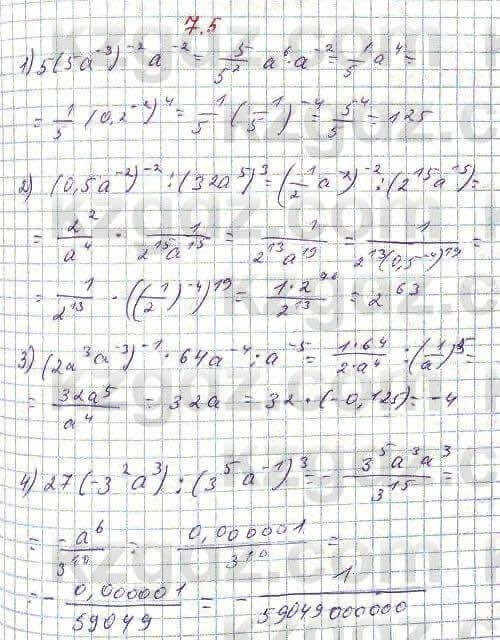 7.5
1) 5(5a⁻³)⁻² a⁻² = 5/5² a⁶·a⁻² = 1/5 a⁴ =
= 1/5 (0,2⁻²)⁴ = 1/5 (1/5)⁻⁴ = 5⁴/5 = 125
2) (0,5a⁻²)⁻² : (32a⁵)³ = (1/2 a⁻²)⁻² : (2¹⁵a¹⁵) =
= 2²/a⁴ · 1/2¹⁵a¹⁵ = 1/2¹³a¹⁹ = 1/2¹³(0,5⁻⁴)¹⁹ =
= 1/2¹³ · ((1/2)⁻⁴)¹⁹ = 1·2⁷⁶/2¹³ = 2⁶³
3) (2a³a⁻³)⁻¹ · 64a⁻⁴ : a⁻⁵ = 1·64/2·a⁴ : (1/a)⁵ =
= 32a⁵/a⁴ = 32a = 32·(-0,125) = -4
4) 27(-3²a³) : (3⁵a⁻¹)³ = - 3⁵a³a³/3¹⁵ =
= -a⁶/3¹⁰ = 0,000001/3¹⁰ =
= - 0,000001/59049 = - 1/59049000000